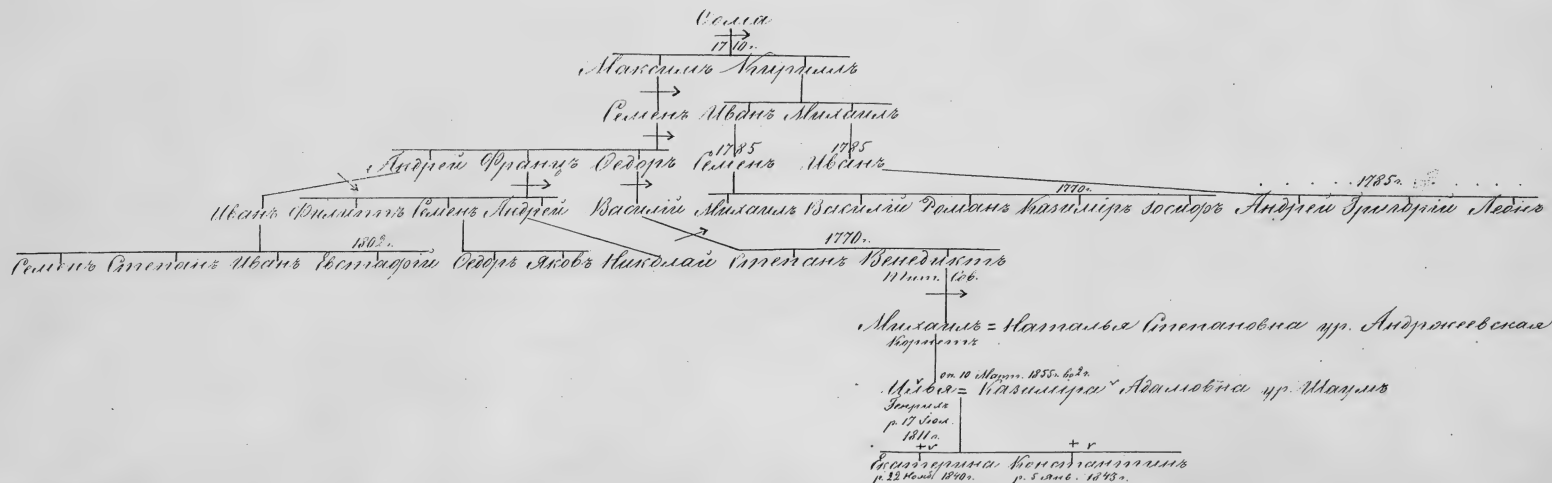 Сома
1710 г.
Максимъ Кириллъ
Семенъ Иванъ Михаилъ
1785 1785
Андрей Францъ Ѳедоръ Семенъ Иванъ
1770 г. 1785 г.
Иванъ Филиппъ Семенъ Андрей Василій Михаилъ Василій Романъ Казиміръ Іосифъ Андрей Григорій Леонъ
1802 г. 1770 г.
Семенъ Степанъ Иванъ Евстафій Ѳедоръ Яковъ Николай Степанъ Венедиктъ
Тит. Сов.
Михаилъ = Наталья Степановна ур. Андржеевская
Корнетъ
10 Март. 1855 г. во 2 г.
Илья = Казиміра Адамовна ур. Шаумъ
р. 17 Іюл.
1811 г.
+ v + v
Екатерина Константинъ
р. 22 Нояб. 1840 г. р. 5 Янв. 1843 г.